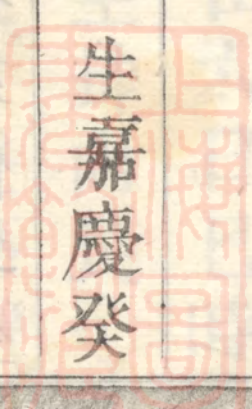 生嘉慶癸